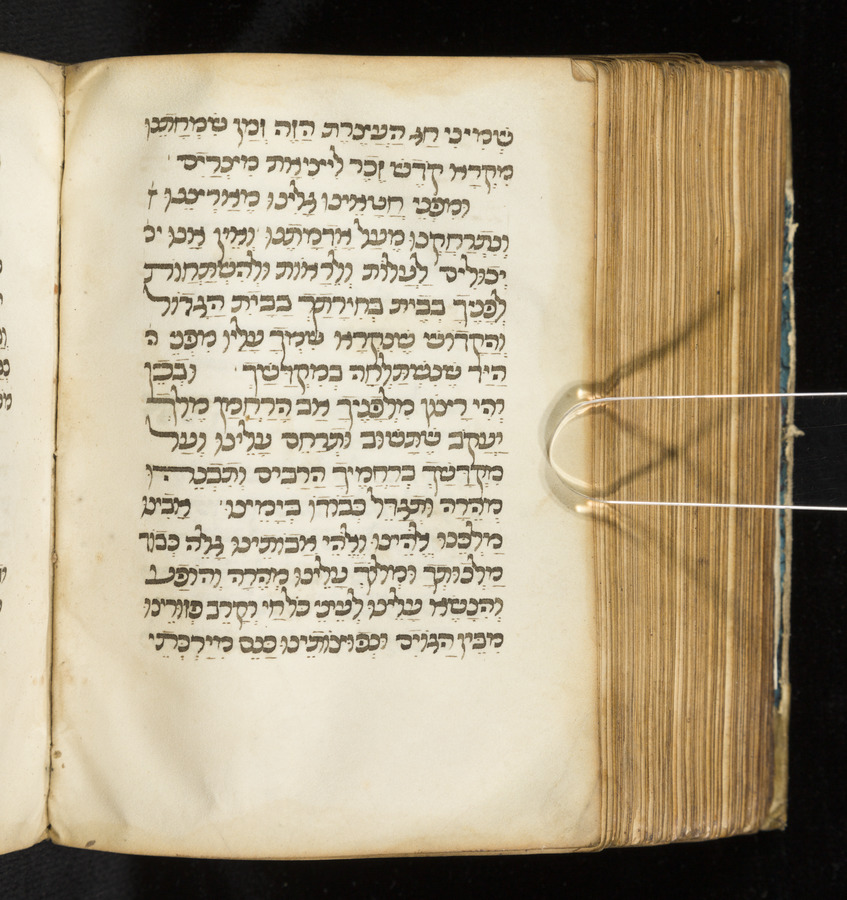 שמיני חג העצרת הזה זמן שמחתנו
מקרא קדש זכר ליציאת מצרים
ומפני חטאינו גלינו מארצנו ו
ונתרחקנו מעל אדמתנו ואין אנו יכ
יכולים לעלות ולראות ולהשתחות
לפניך בבית בחירתך בבית הגדול
והקדוש שנקרא שמך עליו מפני ה
היד שנשתלחה במקדשך ובכן
יהי רצון מלפניך אב הרחמן מלך
יעקב שתשוב ותרחם עלינו ועל
מקדשך ברחמיך הרבים ותבנהו
מהרה ותגדל כבודו בימינו אבינו
מלכנו להינו ולהי אבותינו גלה כבוד
מלכותך ומלוך עלינו מהרה והופע
והנשא עלינו לעיני כל חי וקרב פזורינו
מבין הגוים ונפוצותינו כנס מירכתי